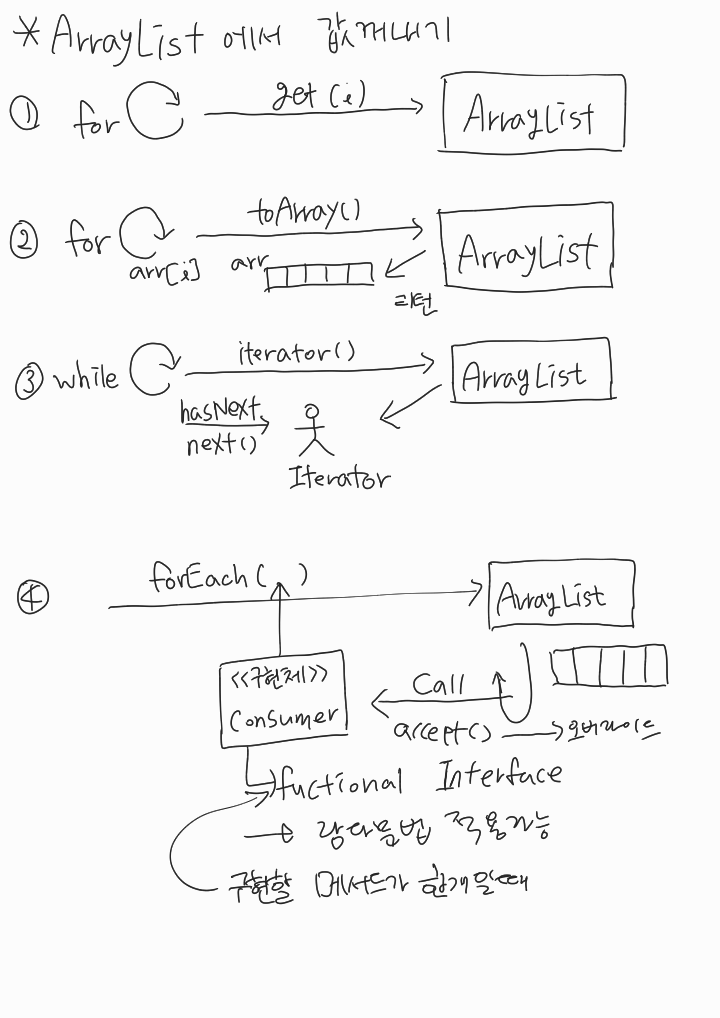 * ArrayList 에서 값꺼내기
① for get(i) ArrayList
② for toArray() ArrayList
arr[i] arr
리턴
③ while iterator() ArrayList
hasNext
next()
Iterator
④ forEach( ) ArrayList
<<구현체>>
Consumer
Call
accept() 오버라이드
fuctional Interface
람다문법 적용가능
구현할 메서드가 한개일때